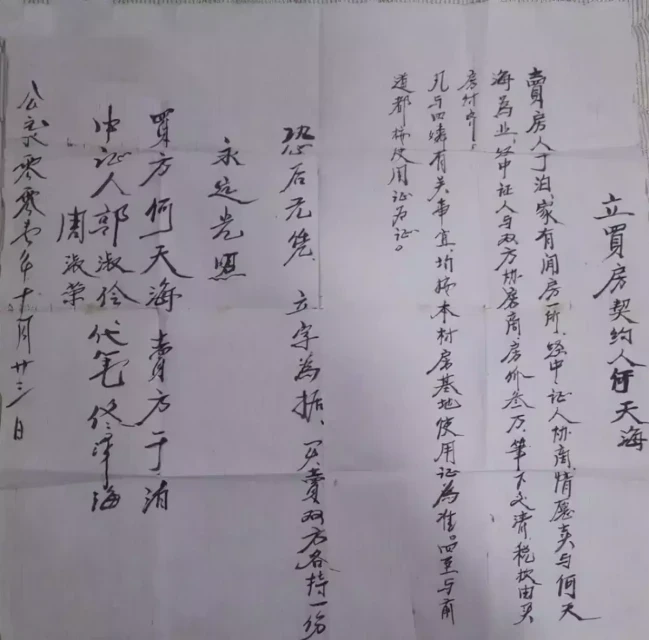 立買房契约人何天海
賣房人于泊家有闲房一所,经中证人协商,情愿卖与何天
海為业,经中证人与双方协商房价叁万,笔下交清税款由买
房付市。
凡与四憐有关事宜,均按本村房基地使用证為准,四至与前
道都按使用证为证。
恐后无凭 立字為据,买賣双方各持一份
永远光照
買方何天海 賣方于泊
中证人郭淑伶代笔佟海
周淑荣
公元零零七年十月廿三日